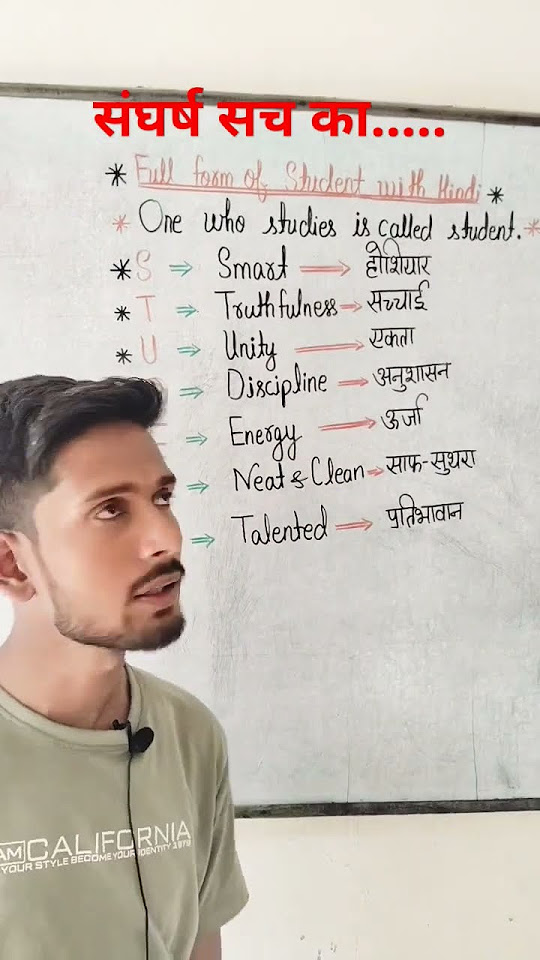 संघर्ष सच का.....
* Full form of Student with Hindi *
* One who studies is called student. *
* S ⇒ Smart → होशियार
* T ⇒ Truthfulness → सच्चाई
* U ⇒ Unity → एकता
Discipline → अनुशासन
⇒ Energy → ऊर्जा
⇒ Neat & Clean → साफ-सुथरा
⇒ Talented → प्रतिभावान
AM CALIFORNIA
YOUR STYLE BECOME YOUR IDENTITY